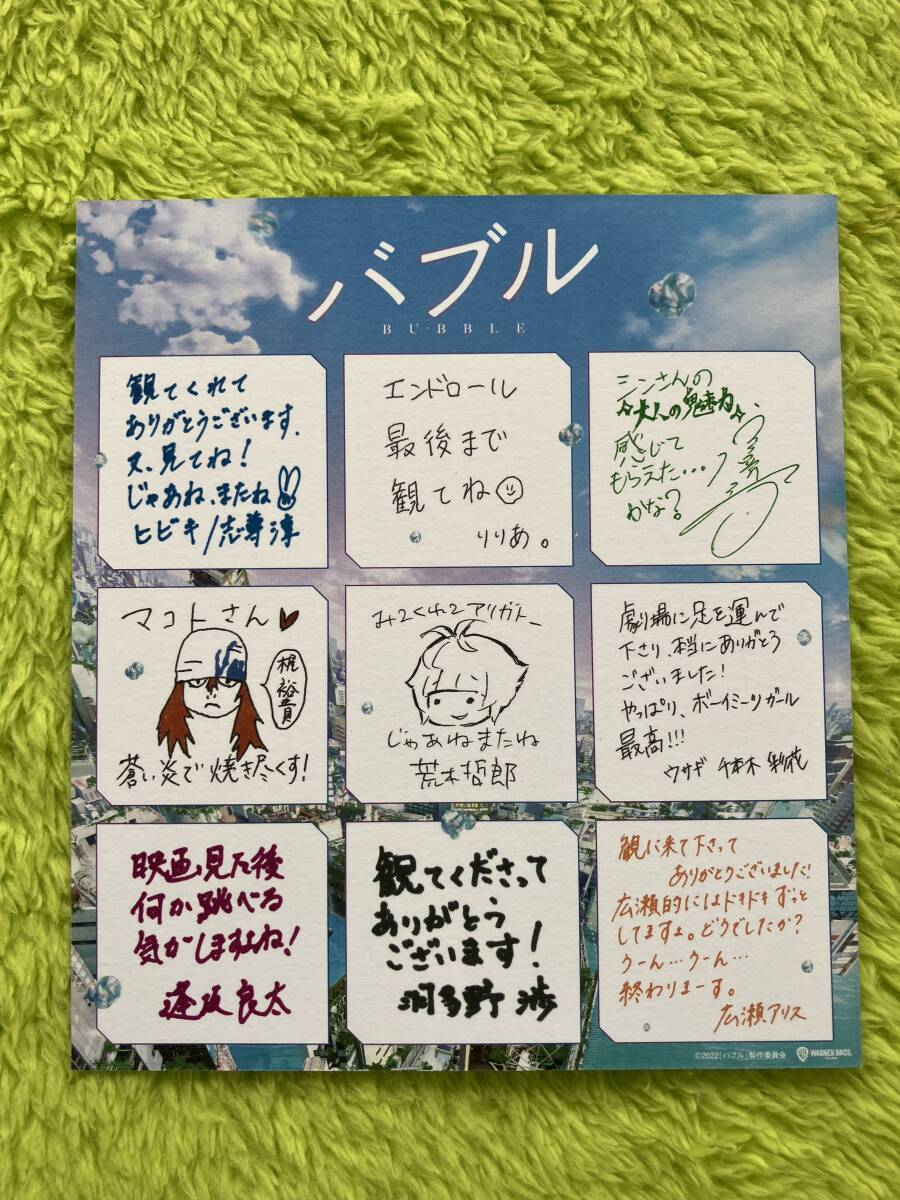 バブル
BUBBLE
観てくれて
ありがとうございます.
又、見てね!
じゃあね、またね
ヒビキ/志尊淳
エンドロール
最後まで
観てね
りりあ。
シンさんの
大人の魅力
感じて
もらえた…
かな?
マコトさん
梶裕貴
蒼い炎で焼き尽くす!
みてくれてアリガトー
じゃあねまたね
荒木哲郎
劇場に足を運んで
下さり、本当にありがとう
ございました!
やっぱり、ボーイミーツガール
最高!!!
ウサギ 千本木彩花
映画見た後
何か跳べる
気がしますよね!
逢坂良太
観てくださって
ありがとう
ございます!
羽多野渉
観に来て下さって
ありがとうございました!
広瀬的にはドキドキずっと
してますよ。どうでしたか?
うーん…うーん…
終わりまーす。
広瀬アリス
©2022「バブル」製作委員会
WARNER BROS.